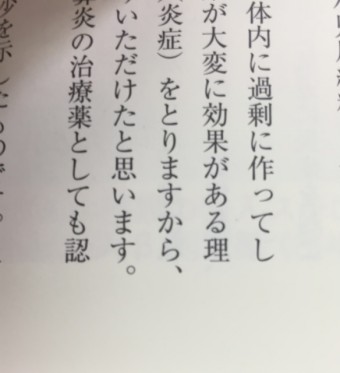 体内に過剰に作ってし
が大変に効果がある理
炎症）をとりますから、
いただけたと思います。
鼻炎の治療薬としても認
を示したものです。